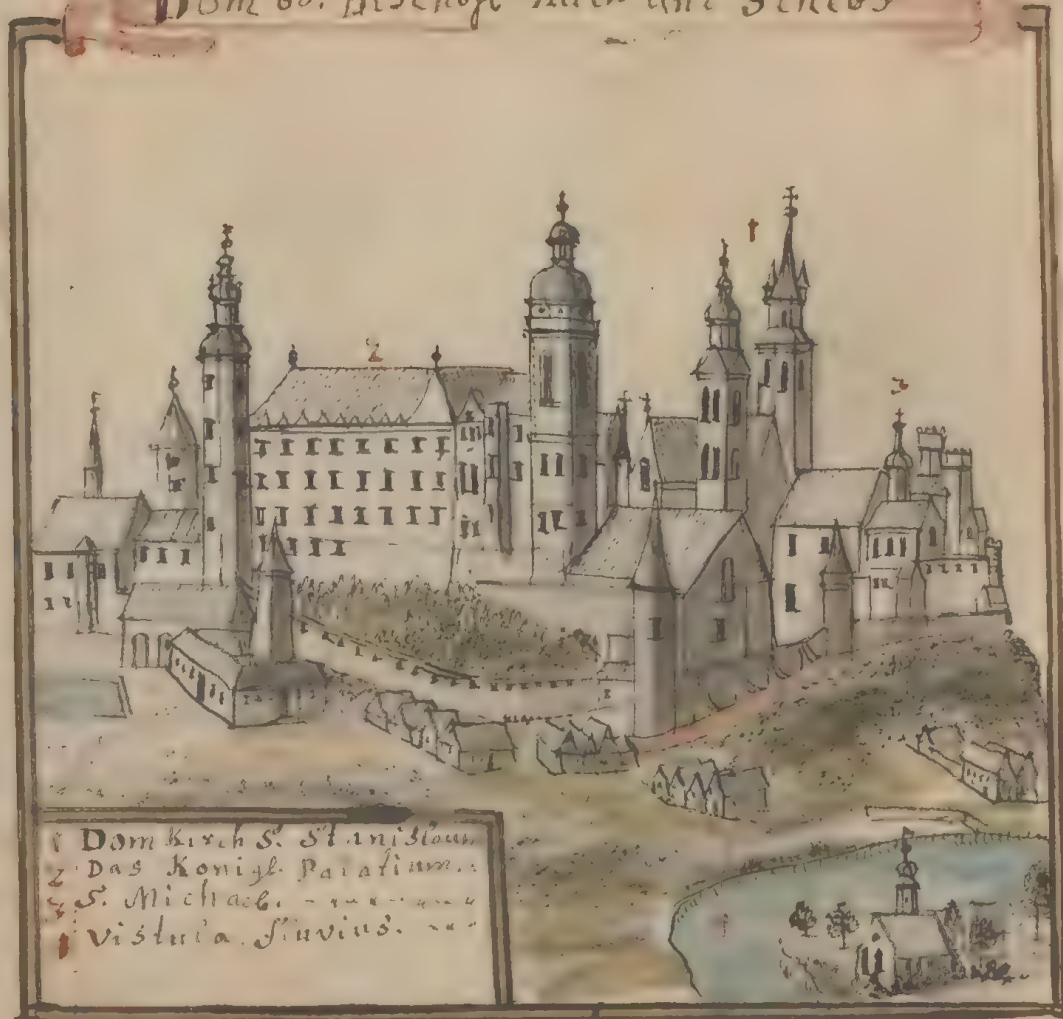 Dom
und Schlos
2
1
3
1 Dom Kirch S. Stanislaus
2 Das Konigl. Palatium.
3 S. Michael.
Vistula fluvius.